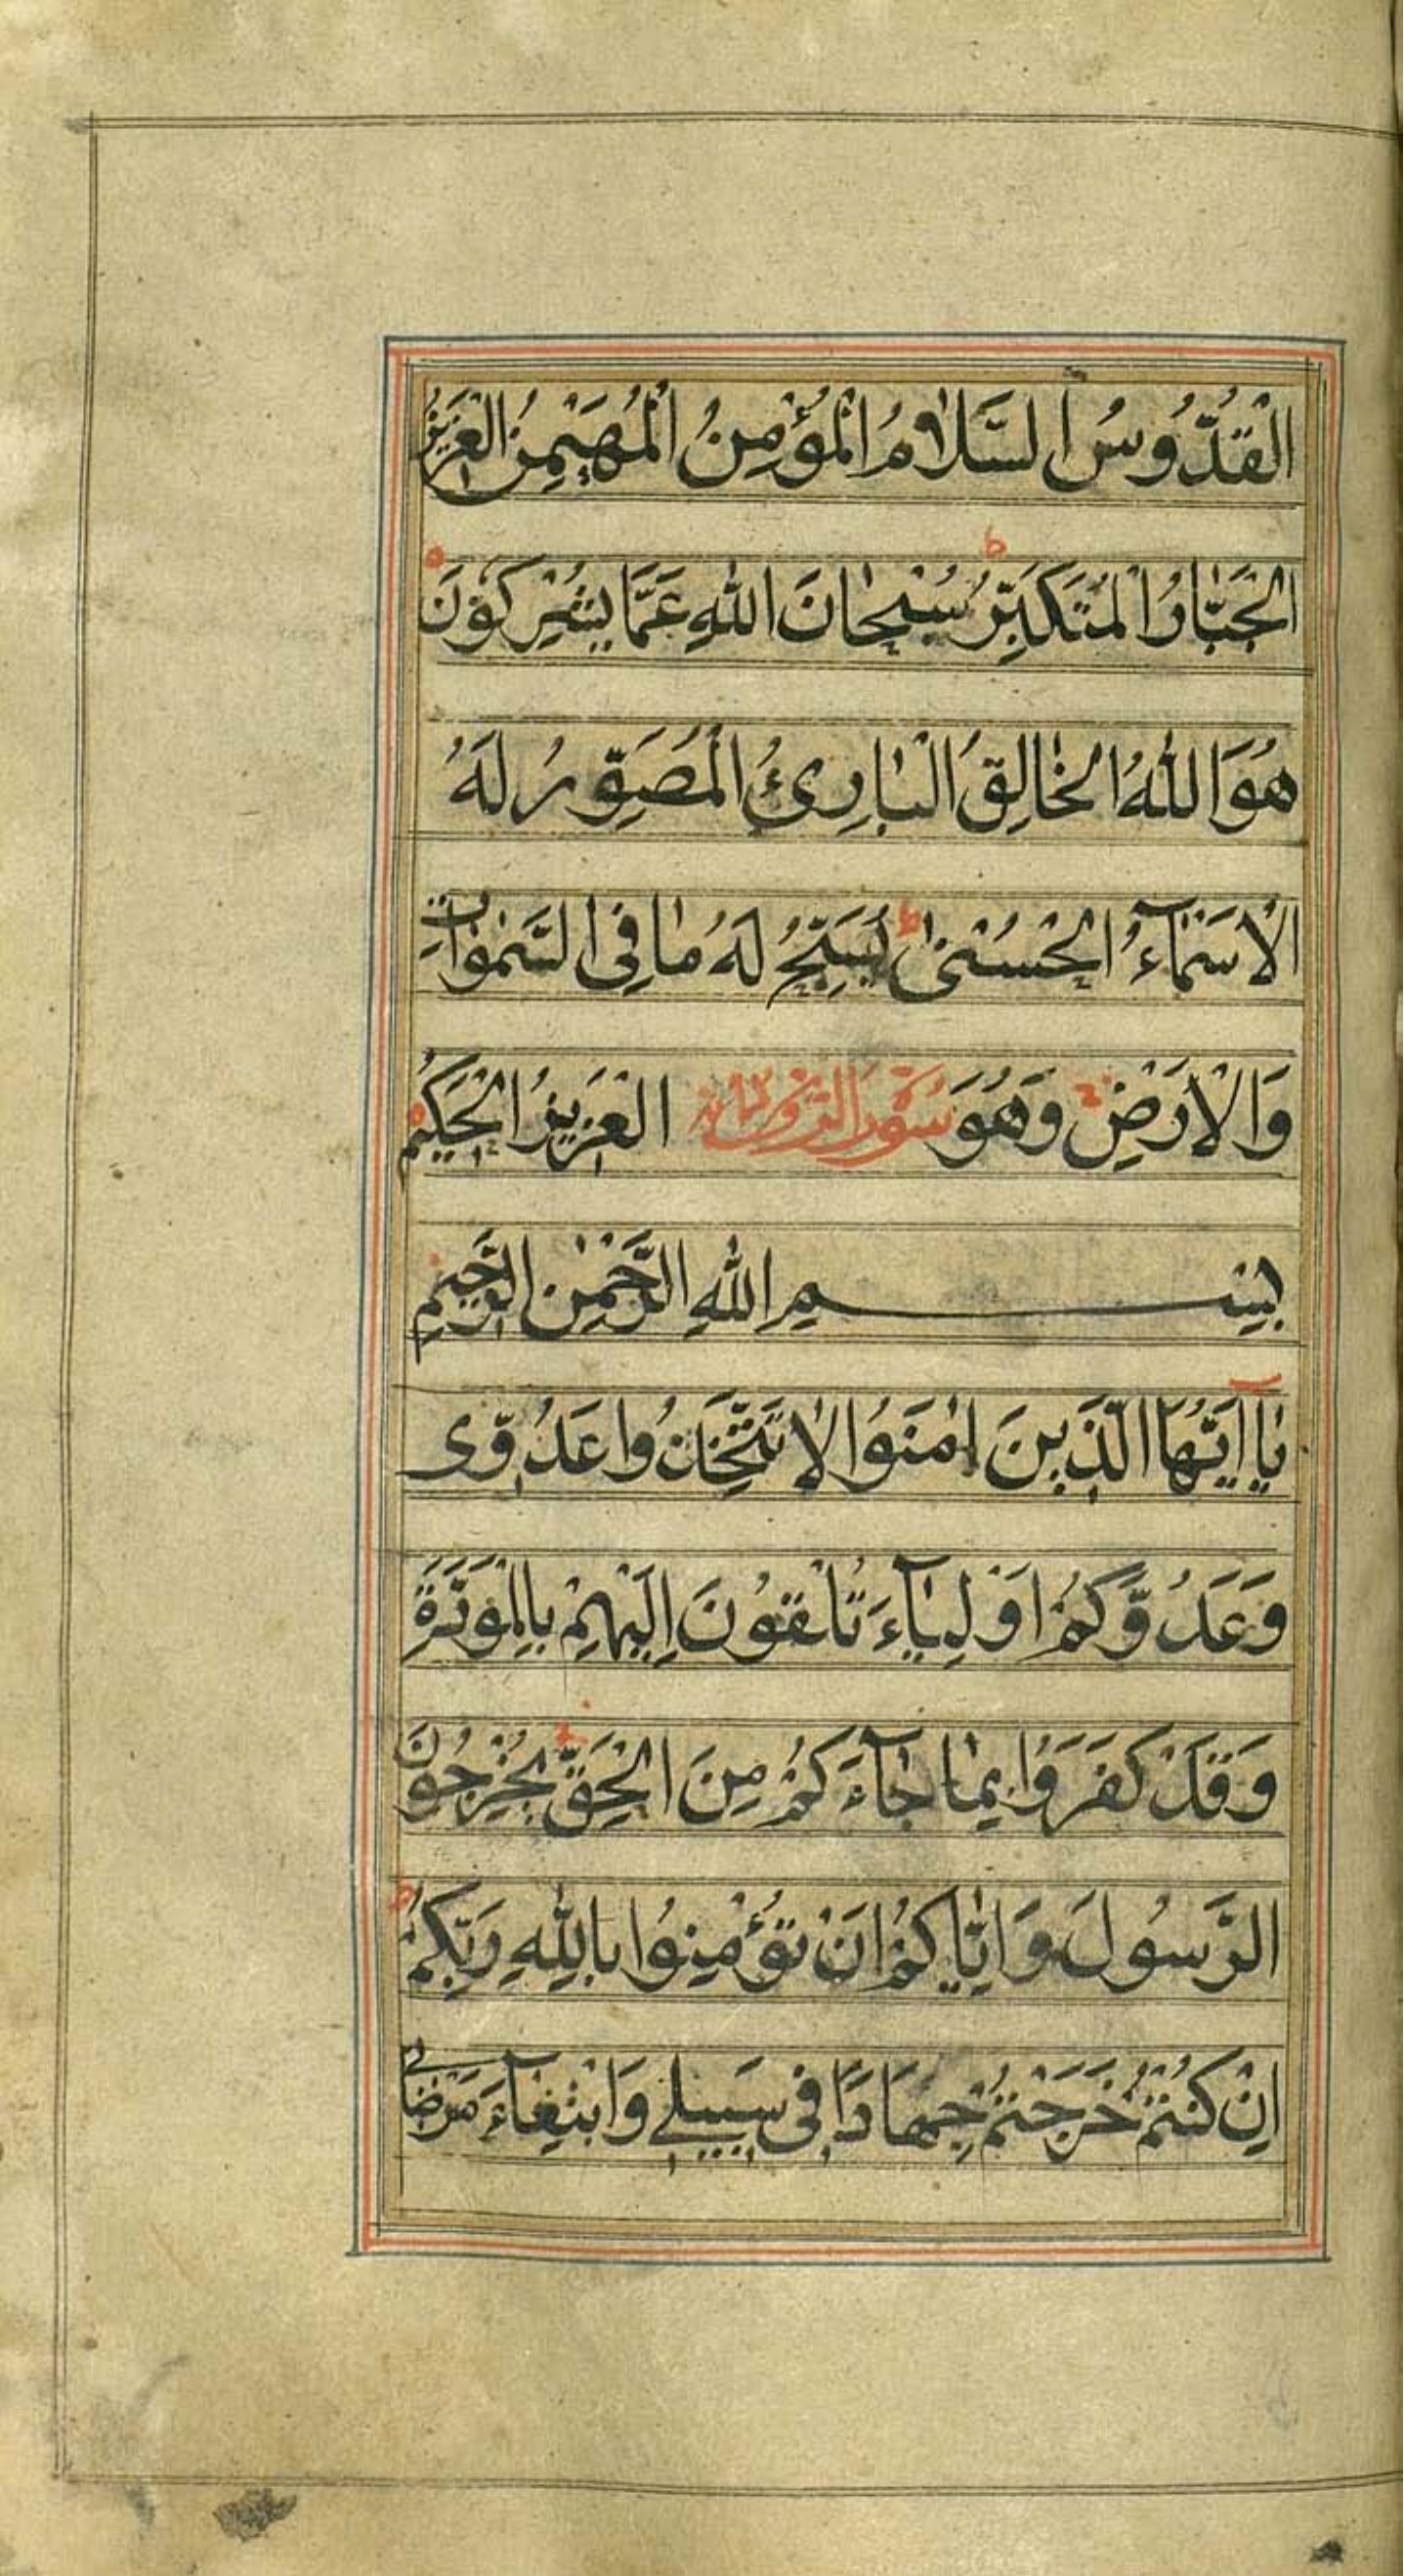 الْقُدُّوسُ السَّلَامُ الْمُؤْمِنُ الْمُهَيْمِنُ الْعَزِيزُ
الْجَبَّارُ الْمُتَكَبِّرُ ط سُبْحَانَ اللهِ عَمَّا يُشْرِكُوْنَ
هُوَ اللهُ الْخَالِقُ الْبَارِئُ الْمُصَوِّرُ لَهُ
الْاَسْمَآءُ الْحُسْنٰى ط يُسَبِّحُ لَهُ مَا فِى السَّمٰوَاتِ
وَالْاَرْضِ وَهُوَ سورة الْعَزِيزُ الْحَكِيْمُ
بِسْمِ اللهِ الرَّحْمٰنِ الرَّحِيْمِ
يَا اَيُّهَا الَّذِيْنَ اٰمَنُوا لَا تَتَّخِذُوا عَدُوِّى
وَعَدُوَّكُمْ اَوْلِيَآءَ تُلْقُوْنَ اِلَيْهِمْ بِالْمَوَدَّةِ
وَقَدْ كَفَرُوْا بِمَا جَآءَكُمْ مِنَ الْحَقِّ يُخْرِجُوْنَ
الرَّسُولَ وَاِيَّاكُمْ اَنْ تُؤْمِنُوْا بِاللهِ رَبِّكُمْ ط
اِنْ كُنْتُمْ خَرَجْتُمْ جِهَادًا فِى سَبِيْلِى وَابْتِغَآءَ مَرْضَاتِى